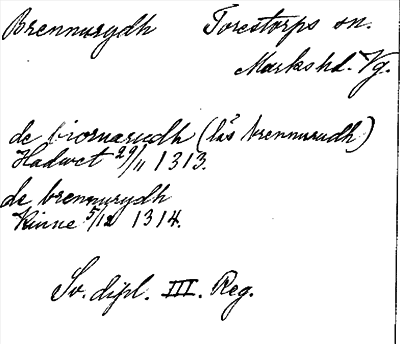 Brennurydh Torestorps sn.
Markshd. Vg.
de biornarudh (läs brennurudh)
Hadwet 29/11 1313.
de brennurydh
Kinne 5/12 1314.
Sv. dipl. III. Reg.